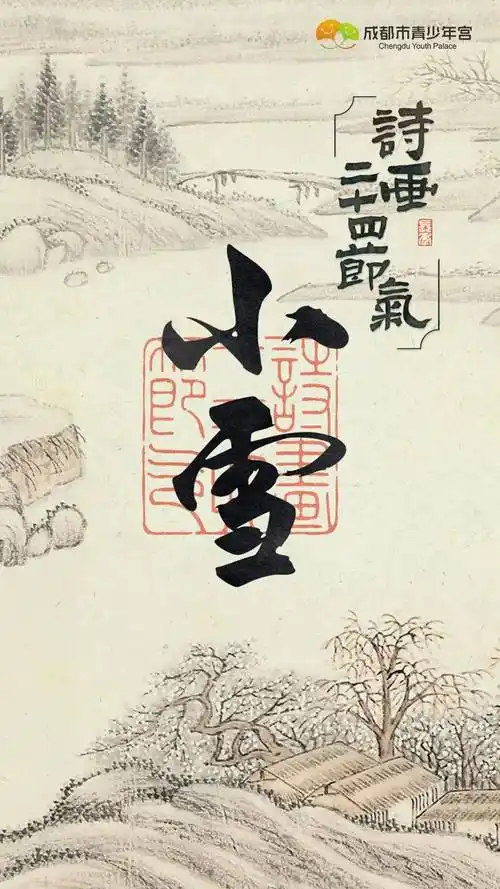 成都市青少年宫
Chengdu Youth Palace
詩画
二十四節氣
小雪